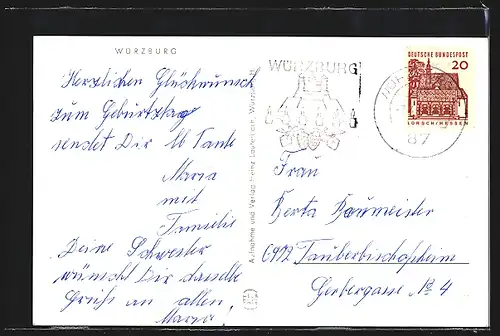 WÜRZBURG
Herzlichen Glückwunsch
zum Geburtstag
sendet Dir lb Tante
Maria
mit
Familie
Deine Schwester
wünscht Dir dasselbe
Gruß an allen,
Maria!
Aufnahme und Verlag: Heinz
WÜRZBURG
87
DEUTSCHE BUNDESPOST
20
LORSCH/HESSEN
Frau
Berta Baumeister
6972 Tauberbischofsheim
Gerbergasse No 4